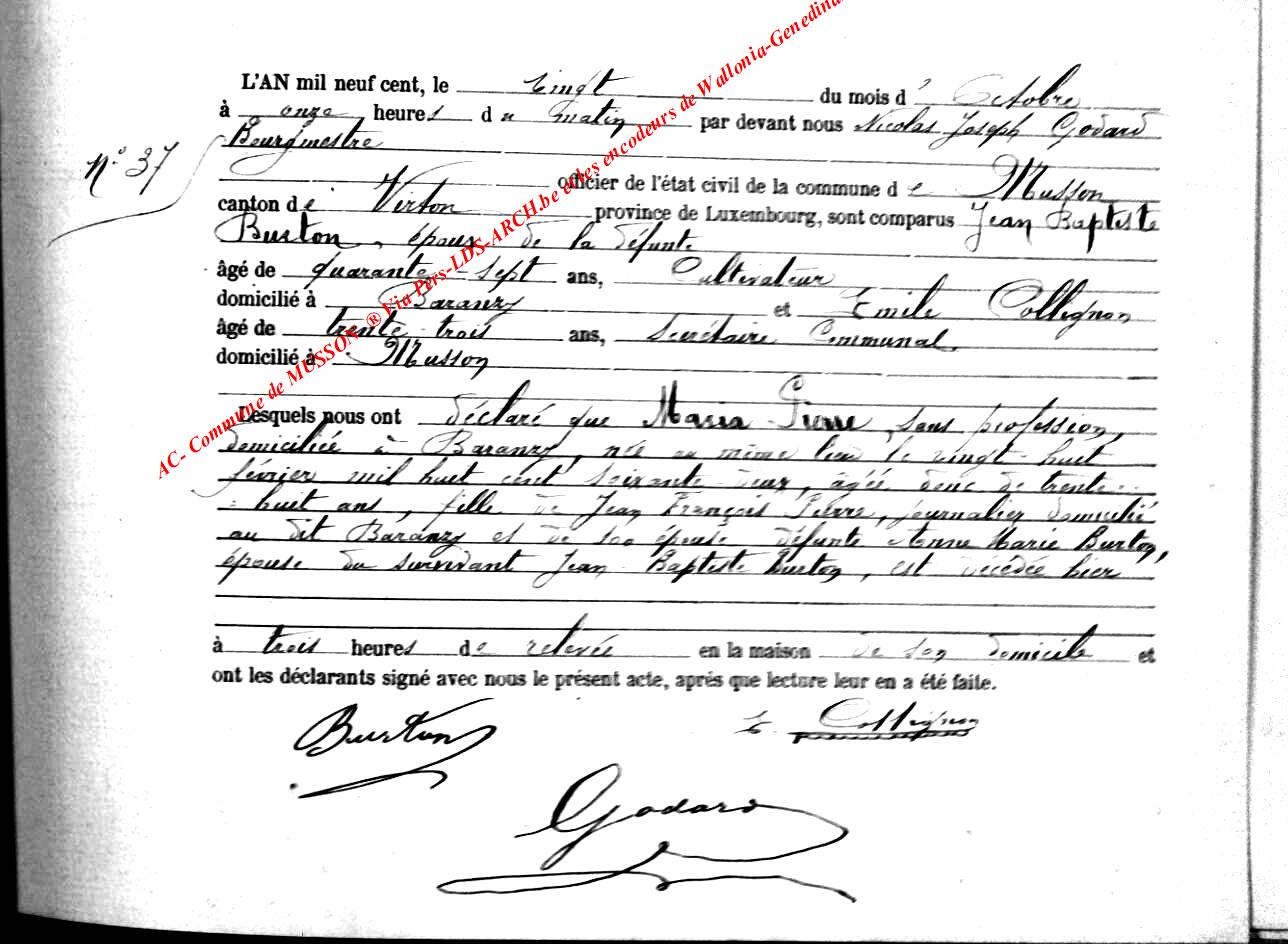 AC- Commune de MUSSON ® Via Pers-LDS-ARCH.be et les encodeurs de Wallonia-Genedina
L'AN mil neuf cent, le vingt du mois d' Octobre
à onze heures du matin par devant nous Nicolas Joseph Godard
Bourgmestre
N° 37
officier de l'état civil de la commune de Musson
canton de Virton province de Luxembourg, sont comparus Jean Baptiste
Burton, époux de la défunte
âgé de quarante-sept ans, Cultivateur
domicilié à Baranzy et Emile Collignon
âgé de trente-trois ans, Secrétaire Communal,
domicilié à Musson
Lesquels nous ont déclaré que Maria Pierre, sans profession,
domiciliée à Baranzy, née au même lieu le vingt-huit
février mil huit cent soixante-deux, âgée donc de trente-
-huit ans, fille de Jean François Pierre, journalier domicilié
au dit Baranzy et de son épouse défunte Anne Marie Burton,
épouse du survivant Jean Baptiste Burton, est décédée hier
à trois heures de relevée en la maison de son domicile et
ont les déclarants signé avec nous le présent acte, après que lecture leur en a été faite.
Burton
E. Collignon
Godard